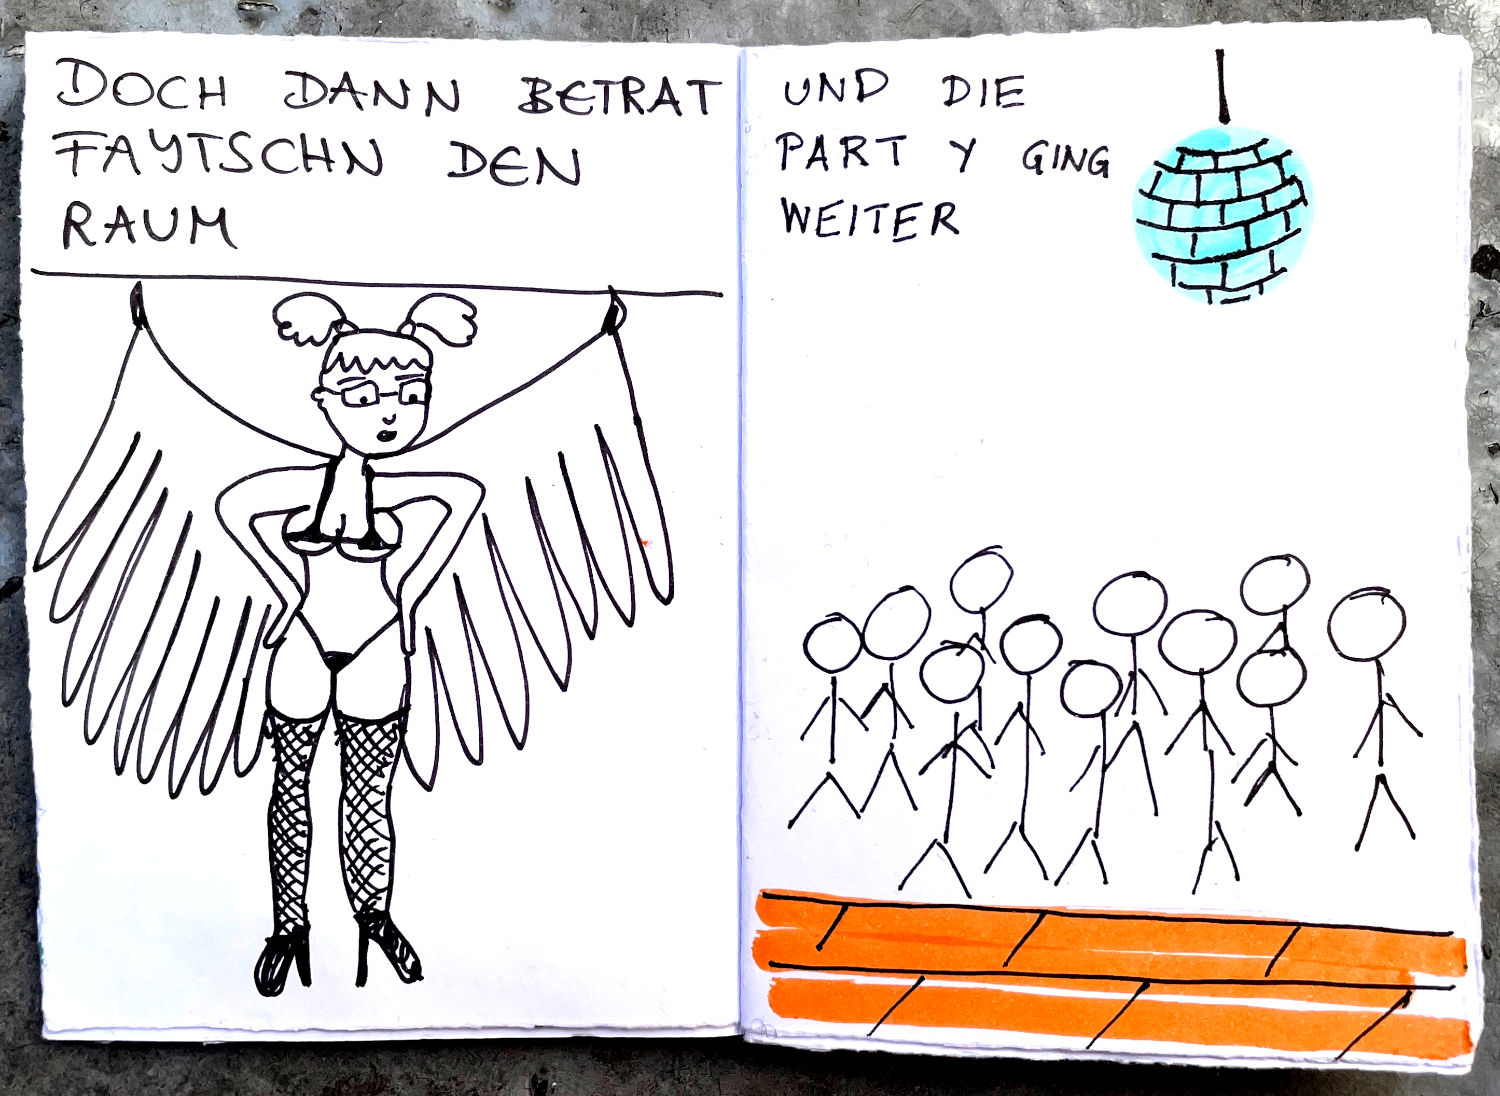 DOCH DANN BETRAT
FAYTSCHN DEN
RAUM
UND DIE
PARTY GING
WEITER